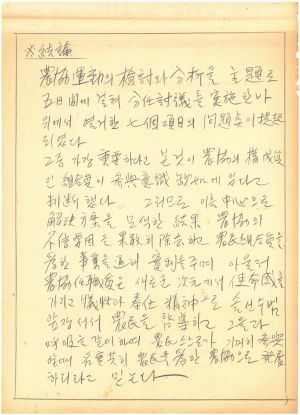 ※ 結論
農協運動의 檢討와 分析을 主題로
五日間에 걸쳐 分任討議를 実施한바
위에서 열거한 七個項目의 問題点이 提起
되었다
그중 가장 重要하다고 본것이 農協의 構成員
인 組合員이 参與意識 缺如에 있다고
判斷했다. 그러므로 이를 中心으로
解決方案을 모색한 結果 農協의
不信要因을 果敢히 除去하고 農民組合員을
爲한 事業을 통해 実利를 주며 아울러
農協 任職員은 새로운 次元에서 使命感을
가지고 犧牲과 奉仕 精神으로 솔선수범
앞장서서 農民을 啓導하고 그들과
呼吸을 같이하여 農民 스스로가 기꺼히 参與
할때 名實共히 農民을 爲한 農協으로 発展
하리라고 믿는다